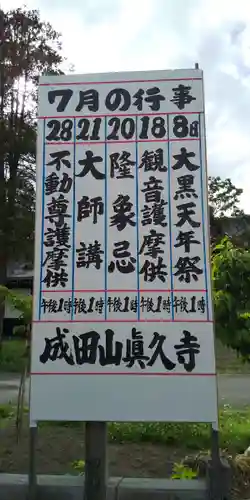 7月の行事
8日 大黒天年祭 午後1時
18 観音護摩供 午後1時
20 隆象忌 午後1時
21 大師講 午後1時
28 不動尊護摩供 午後1時
成田山眞久寺